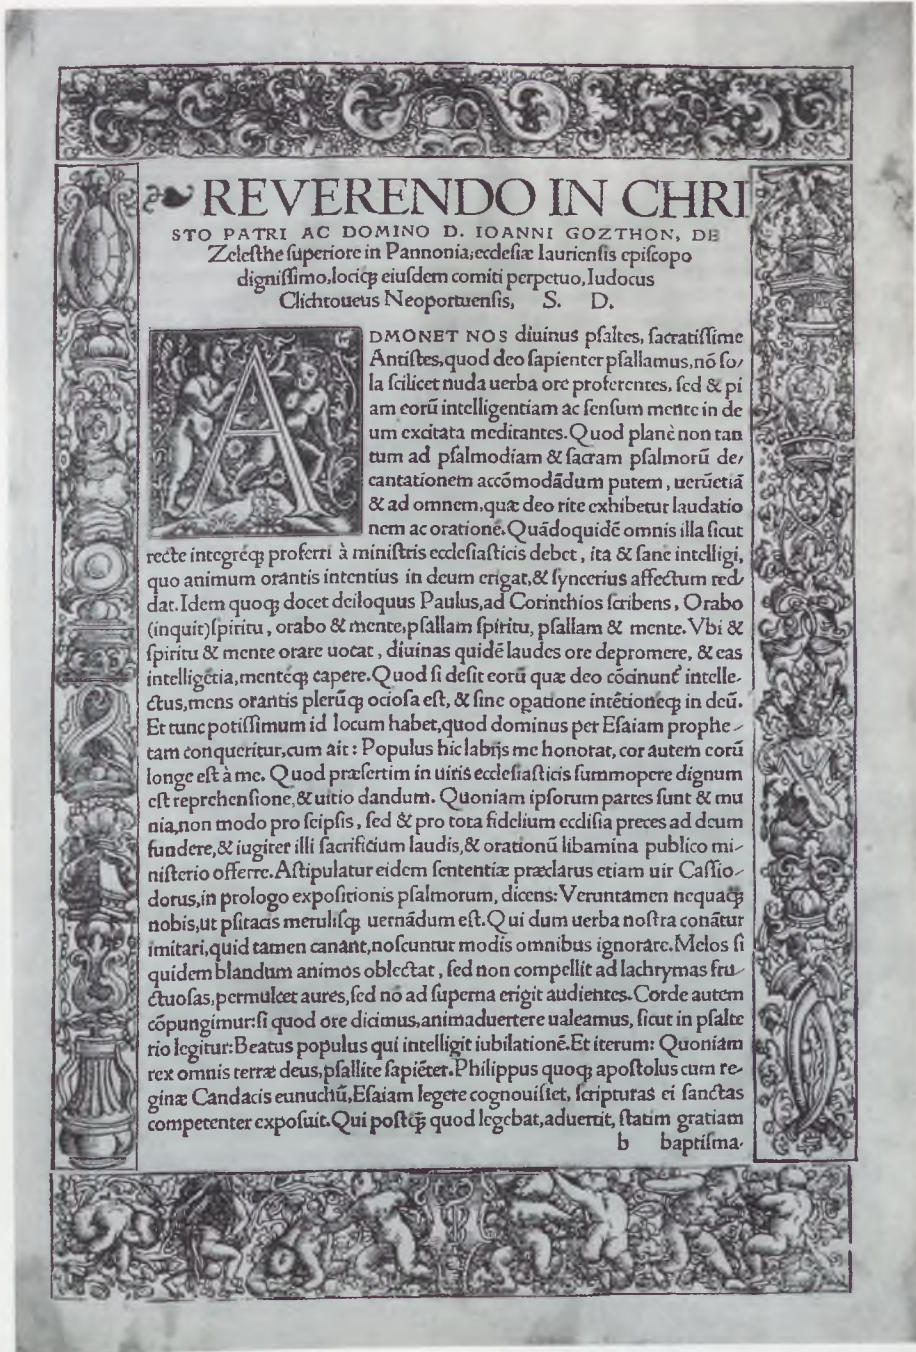 REVERENDO IN CHRI
STO PATRI AC DOMINO D. IOANNI GOZTHON, DE
Zelesthe ſuperiore in Pannonia;eccleſiæ Iaurienſis epiſcopo
digniſſimo,lociq́ꝫ eiuſdem comiti perpetuo,Iudocus
Clichtoueus Neoportuenſis, S. D.
ADMONET NOS diuinus pſaltes, ſacratiſſime
Antiſtes,quod deo ſapienter pſallamus,nō ſo/
la ſcilicet nuda uerba ore proferentes, ſed & pi
am eorū intelligentiam ac ſenſum mente in de
um excitata meditantes.Quod planè non tan
tum ad pſalmodiam & ſacram pſalmorū de/
cantationem accōmodādum putem, uerūetiā
& ad omnem,quæ deo rite exhibetur laudatio
nem ac orationē.Quādoquidē omnis illa ſicut
recte integréq́ꝫ proferri à miniſtris eccleſiaſticis debet, ita & ſane intelligi,
quo animum orantis intentius in deum erigat,& ſyncerius affectum red/
dat.Idem quoqꝫ docet deiloquus Paulus,ad Corinthios ſcribens, Orabo
(inquit)ſpiritu, orabo & mente,pſallam ſpiritu, pſallam & mente.Vbi &
ſpiritu & mente orare uocat, diuinas quidē laudes ore depromere, & eas
intelligētia,mentéqꝫ capere.Quod ſi deſit eorū quæ deo cōcinunt̃ intelle-
ctus,mens orantis plerūqꝫ ocioſa eſt, & ſine oꝑatione intētionéqꝫ in deū.
Et tunc potiſſimum id locum habet,quod dominus per Eſaiam prophe-
tam conqueritur,cum ait: Populus hic labijs me honorat, cor autem eorū
longe eſt à me. Quod præſertim in uiris eccleſiaſticis ſummopere dignum
eſt reprehenſione,& uitio dandum. Quoniam ipſorum partes ſunt & mu
nia,non modo pro ſeipſis, ſed & pro tota fidelium eccliſia preces ad deum
fundere,& iugiter illi ſacrificium laudis,& orationū libamina publico mi-
niſterio offerre.Aſtipulatur eidem ſententiæ præclarus etiam uir Caſſio-
dorus,in prologo expoſitionis pſalmorum, dicens:Veruntamen nequaq̃ꝫ
nobis,ut pſitacis meruliſqꝫ uernādum eſt.Qui dum uerba noſtra conātur
imitari,quid tamen canant,noſcuntur modis omnibus ignorare.Melos ſi
quidem blandum animos oblectat, ſed non compellit ad lachrymas fru-
ctuoſas,permulcet aures,ſed nō ad ſuperna erigit audientes.Corde autem
cōpungimur:ſi quod ore dicimus,animaduertere ualeamus, ſicut in pſalte
rio legitur:Beatus populus qui intelligit iubilationē.Et iterum: Quoniam
rex omnis terræ deus,pſallite ſapiēter.Philippus quoqꝫ apoſtolus cum re-
ginæ Candacis eunuchū,Eſaiam legere cognouiſſet, ſcripturas ei ſanctas
competenter expoſuit.Qui poſtq̃ꝫ quod legebat,aduertit, ſtatim gratiam
b baptiſma-